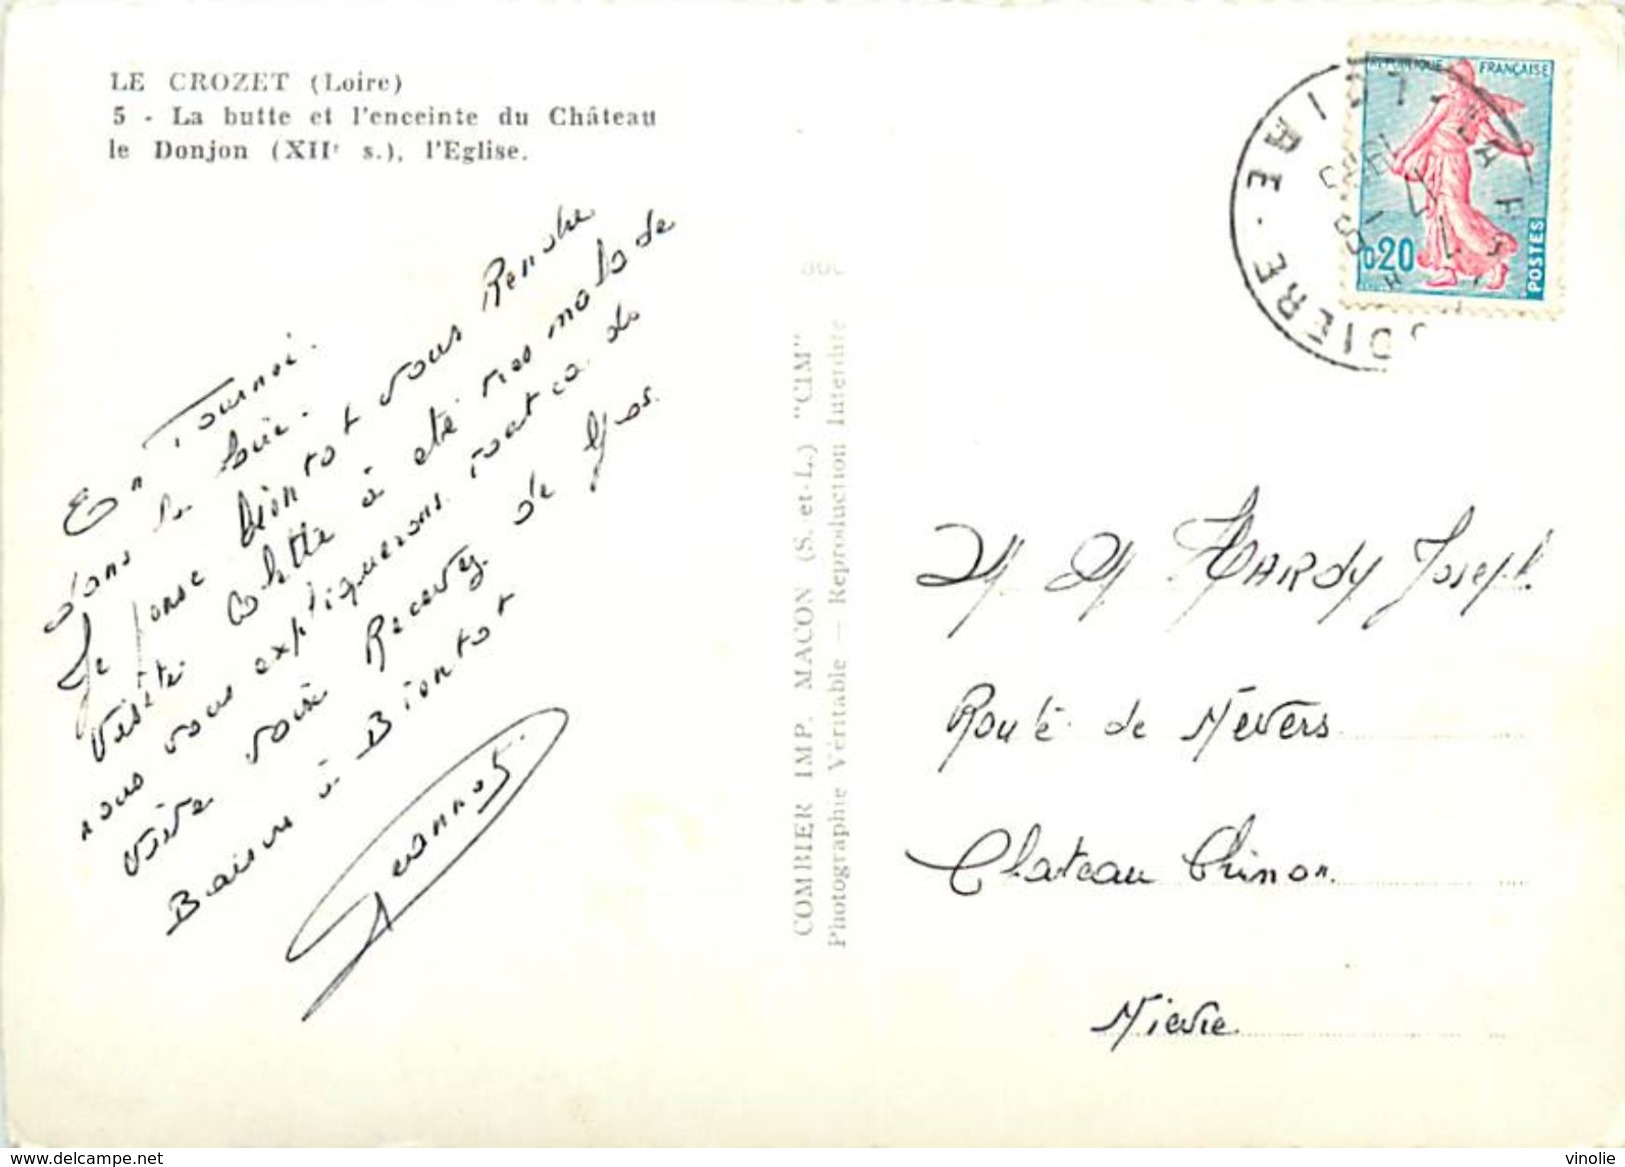 LE CROZET (Loire)
5 - La butte et l'enceinte du Château
le Donjon (XIIe s.), l'Eglise.
En Tournoi.
dans la
Je pense bientot vous Rendre
visite Colette à été très malade
nous vous expliquerons tout ça de
vive voix Recevez de Gros.
Baisers à Bientot
Jeannot
COMBIER IMP. MACON (S.-et-L.) "CIM"
Photographie Véritable — Reproduction Interdite
REPUBLIQUE FRANÇAISE
0,20
POSTES
LOIRE
M M HARDY Joseph
Route de Nevers
Chateau Chinon
Nièvre
delcampe.net
vinolie